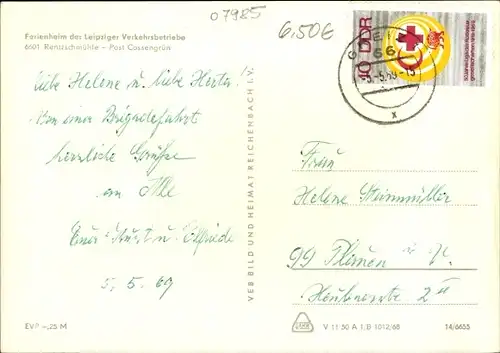 07985
6.50€
Ferienheim der Leipziger Verkehrsbetriebe
6601 Rentzschmühle - Post Cossengrün
Liebe Helene u. liebe Herta!
Von einer Brigadefahrt
herzliche Grüße
an Alle
Eure Kurt u. Elfriede
5. 5. 69
EVP -,25 M
VEB BILD UND HEIMAT REICHENBACH I. V.
10 DDR
GREIZ
66
-5.-5.69-15
x
Frau
Helene Steinmüller
99 Plauen i. V.
2 II
V 11 50 A 1/B 1012/68
14/6655